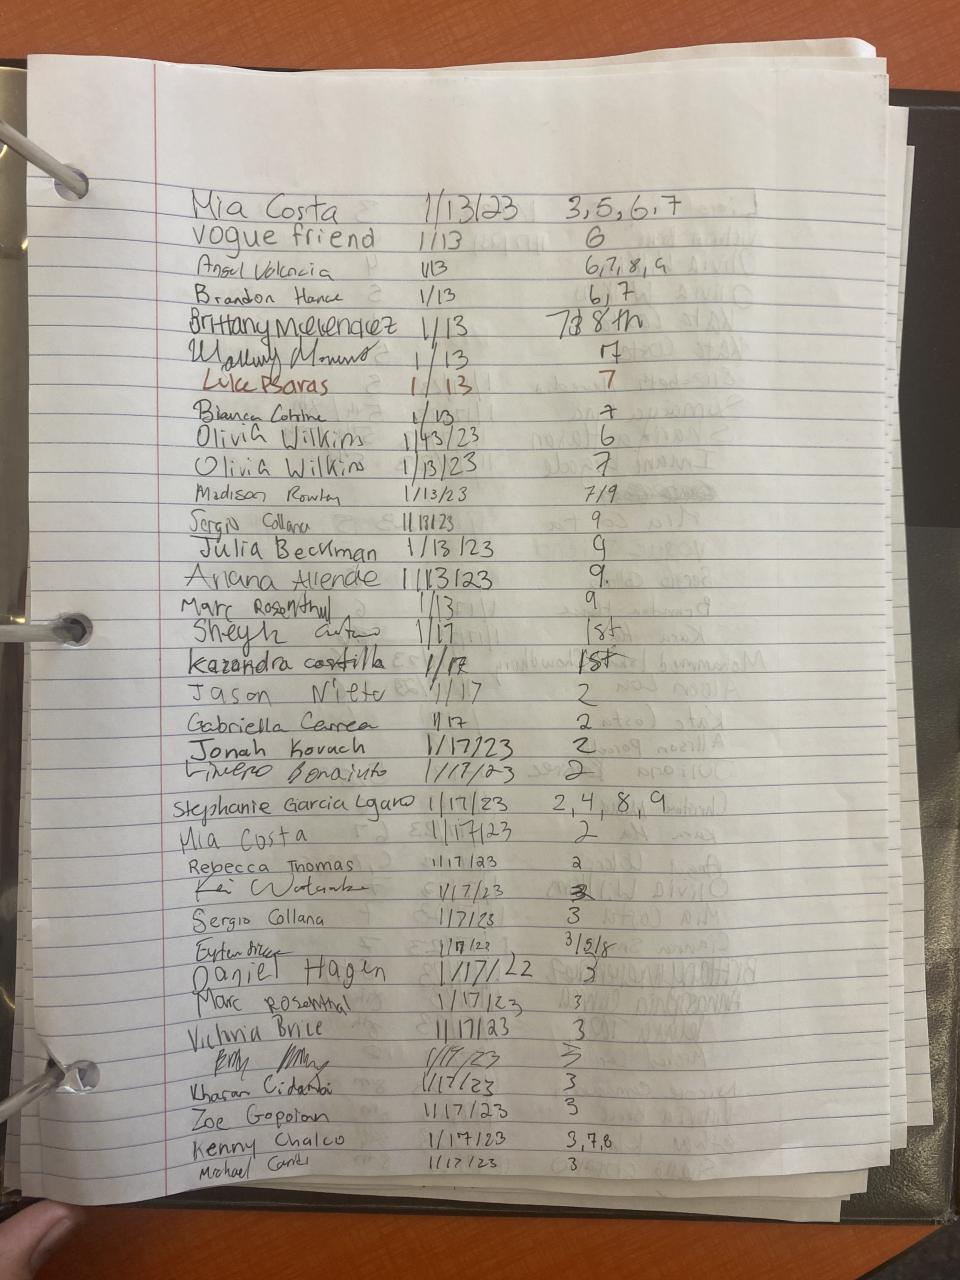 Mia Costa 1/13/23 3, 5, 6, 7
vogue friend 1/13 6
Angel Valencia 1/13 6, 7, 8, 9
Brandon Hance 1/13 6, 7
Brittany 1/13 8th
1/13 7
Luke Psaras 1/13 7
Bianca 1/13 7
Olivia Wilkins 1/13/23 6
Olivia Wilkins 1/13/23 7
Madison Rowley 1/13/23 7/9
Sergio Collana 1/13/23 9
Julia Beckman 1/13/23 9
Ariana Allende 1/13/23 9.
Marc Rosenthal 1/13 9
Sheyla 1/17 1st
Kazandra costilla 1/17 1st
Jason Nieto 1/17 2
Gabriella Correa 1/17 2
Jonah Kovach 1/17/23 2
Bonaiuto 1/17/23 2
Stephanie Garcia 1/17/23 2, 4, 8, 9
Mia Costa 1/17/23 2
Rebecca Thomas 1/17/23 2
Kei 1/17/23
Sergio Collana 1/17/23 3
3/5/8
Daniel Hagen 1/17/22 3
Marc Rosenthal 1/17/23 3
Victoria Brice 1/17/23 3
1/17/23 3
Kharan Cidambi 1/17/23 3
Zoe Gopoian 1/17/23 3
Kenny Chalco 1/17/23 3,7,8
Michael 1/17/23 3